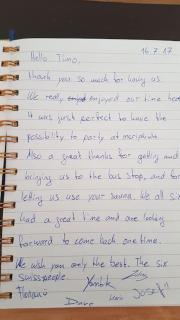 16.7.17
Hello Timo,
thank you so much for having us.
We really enjoyed our time here.
It was just perfect to have the
possibility to party at
Also a great thanks for getting and
bringing us to the bus stop, and for
letting us use your sauna. We all six
had a great time and are looking
forward to come back one time.
We wish you only the best. The six
swisspeople.
Yannik
Dave
Josef